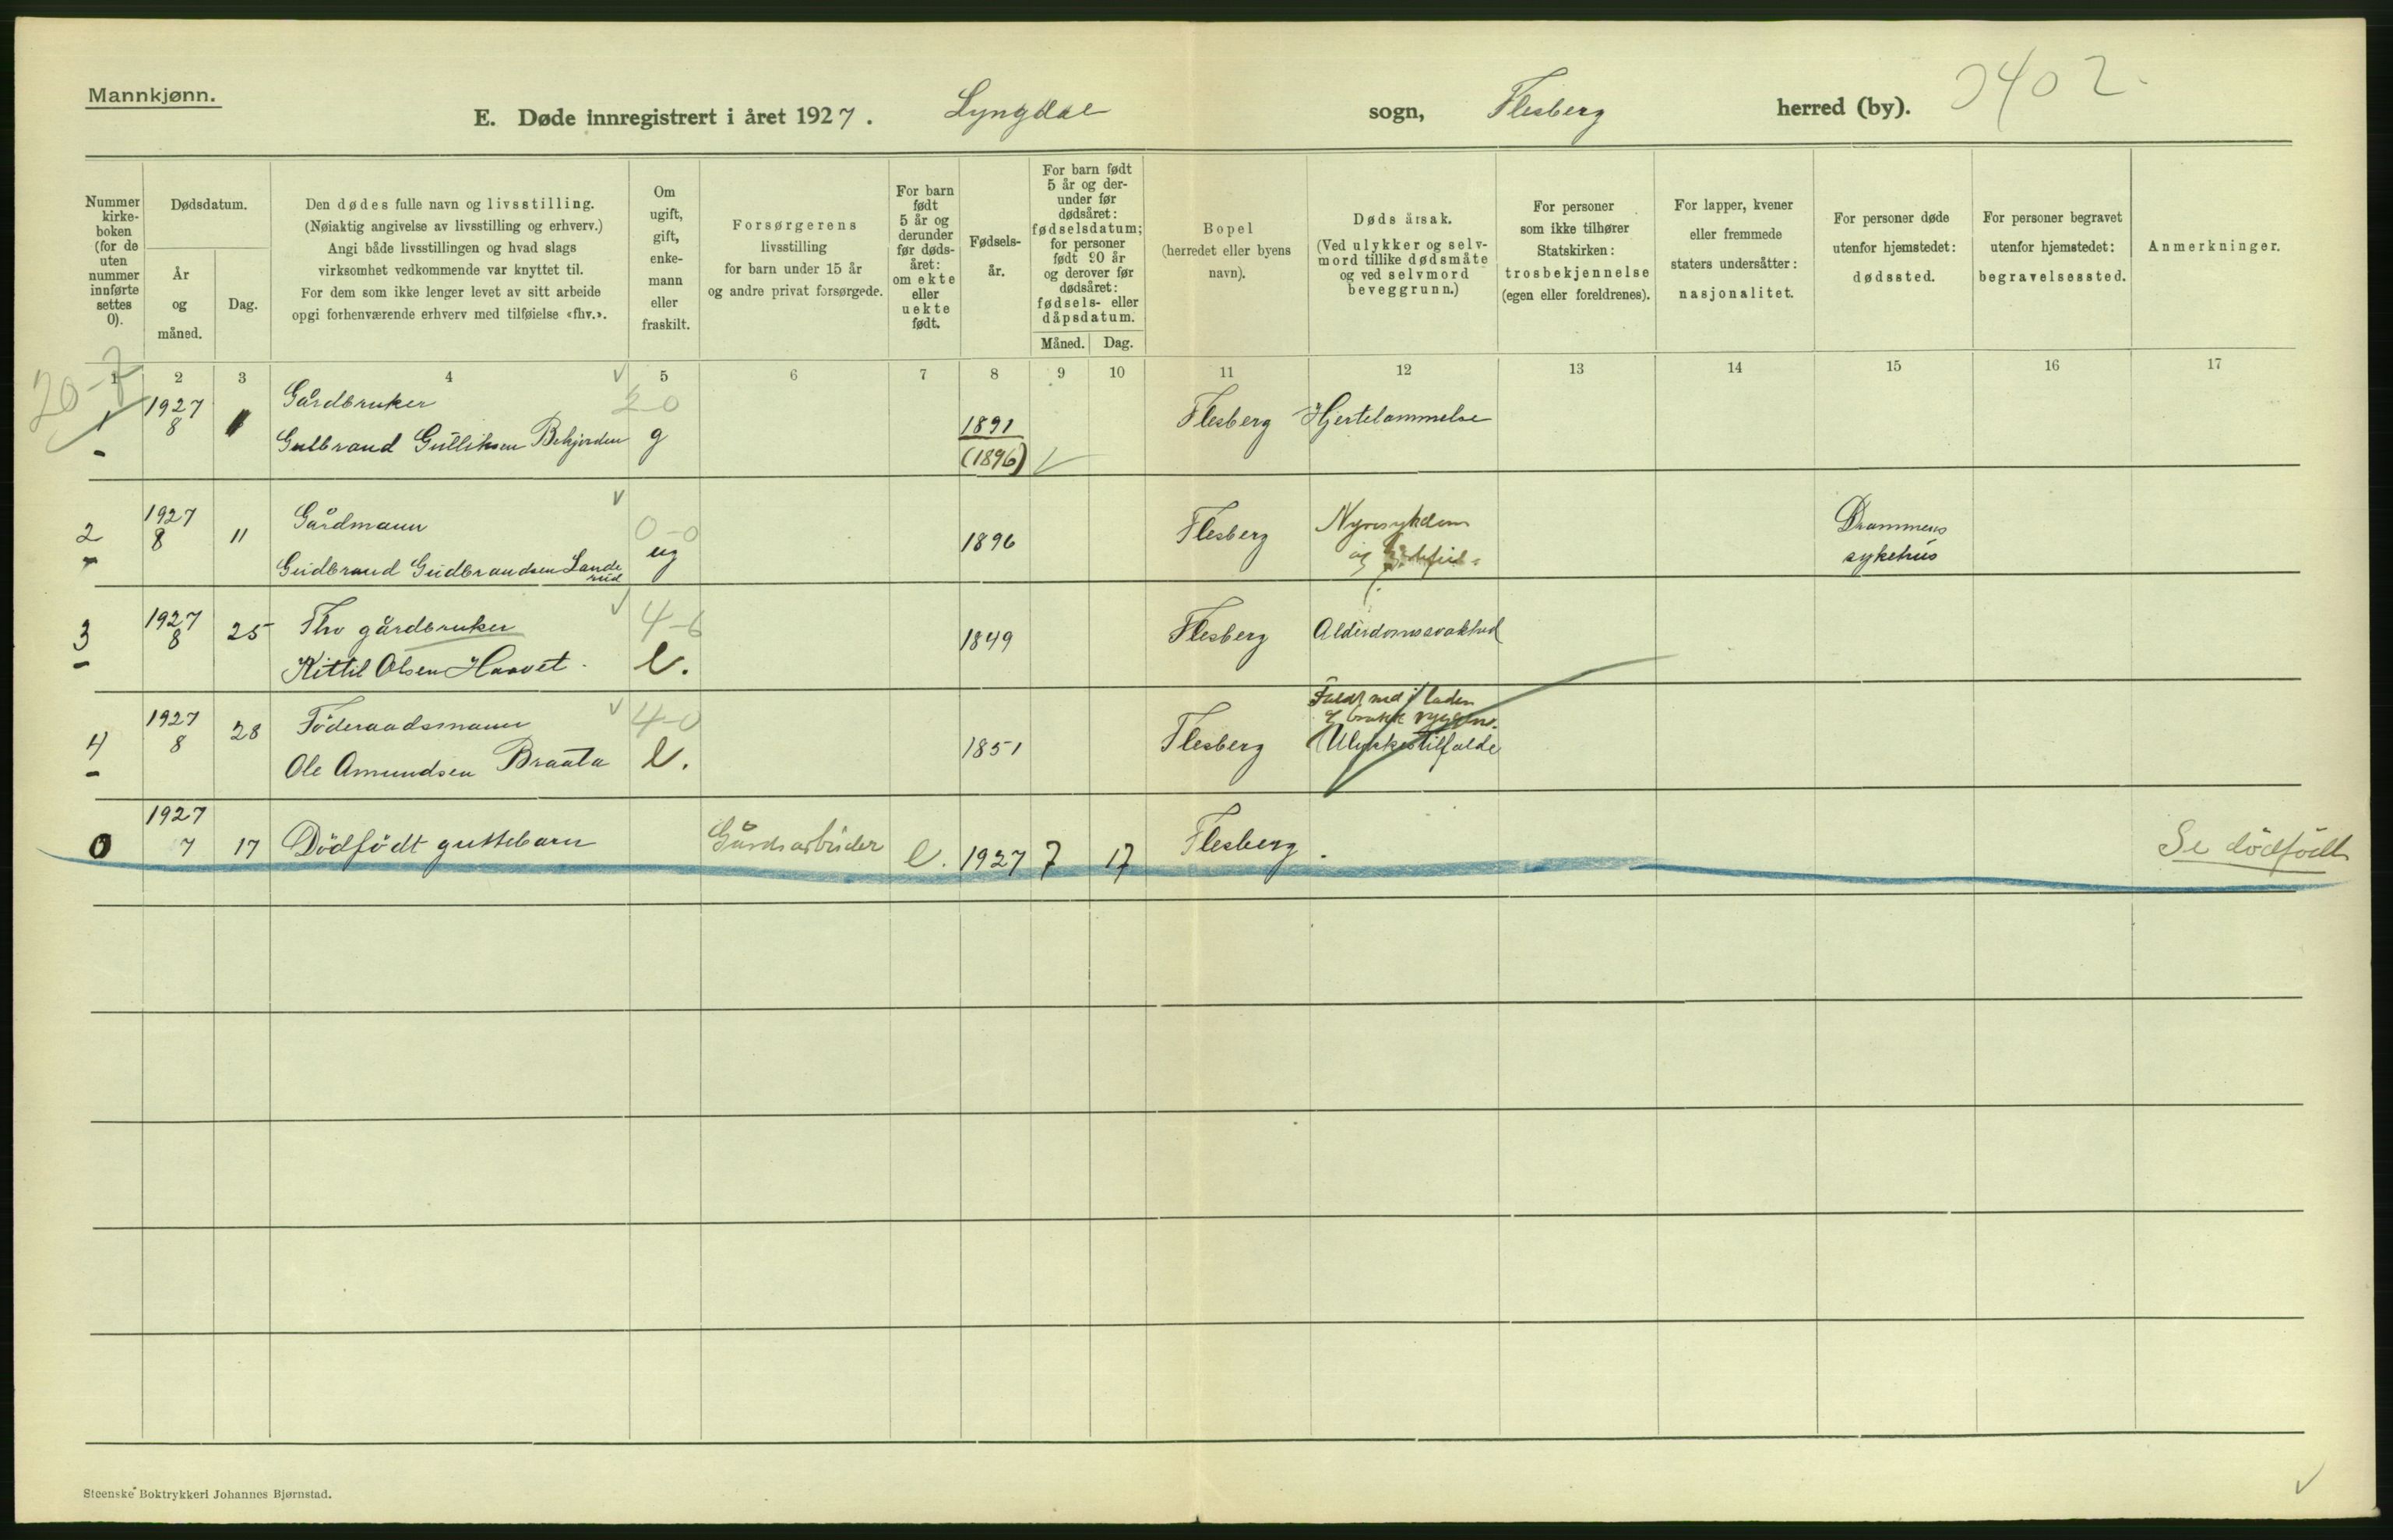 Mannkjønn.
E. Døde innregistrert i året 1927. Lyngdal sogn, Flesberg herred (by). 3402
Nummer kirke-boken (for de uten nummer innførte settes 0).
Dødsdatum.
År og måned.
Dag.
Den dødes fulle navn og livsstilling.
(Nøiaktig angivelse av livsstilling og erhverv.)
Angi både livsstillingen og hvad slags
virksomhet vedkommende var knyttet til.
For dem som ikke lenger levet av sitt arbeide
opgi forhenværende erhverv med tilføielse «fhv.».
Om ugift, gift, enke-mann eller fraskilt.
Forsørgerens
livsstilling
for barn under 15 år
og andre privat forsørgede.
For barn født 5 år og derunder før døds-året: om ekte eller uekte født.
Fødsels-år.
For barn født 5 år og der-under før dødsåret: fødselsdatum; for personer født 90 år og derover før dødsåret: fødsels- eller dåpsdatum.
Måned. Dag.
Bopel
(herredet eller byens
navn).
Dødsårsak.
(Ved ulykker og selv-
mord tillike dødsmåte
og ved selvmord
beveggrunn.)
For personer
som ikke tilhører
Statskirken:
trosbekjennelse
(egen eller foreldrenes).
For lapper, kvener
eller fremmede
staters undersåtter:
nasjonalitet.
For personer døde
utenfor hjemstedet:
dødssted.
For personer begravet
utenfor hjemstedet:
begravelsessted.
Anmerkninger.
1 2 3 4 5 6 7 8 9 10 11 12 13 14 15 16 17
20-7
1 1927 Gårdbruker 20
8 1 Gulbrand Gulliksen g 1891 Flesberg Hjertelammelse
(1896)
2 1927 Gårdmann 0-0 Nyresykdom Drammens
8 11 Gudbrand Gudbrandsen Landerud ug 1896 Flesberg og sykehus
3 1927 25 Fhv gårdbruker 4-6
8 Kittil Olsen Haavet. e. 1849 Flesberg Alderdomssvakhed
4 1927 28 Föderaadsmann 4-0 Faldt ned i laden
8 & brakk ryggen.
Ole Amundsen Braata e. 1851 Flesberg (Ulykkestilfælde
0 1927
7 17 Dödfödt guttebarn Gårdsarbeider e. 1927 7 17 Flesberg. Se dödfödte
Steenske Boktrykkeri Johannes Bjørnstad.